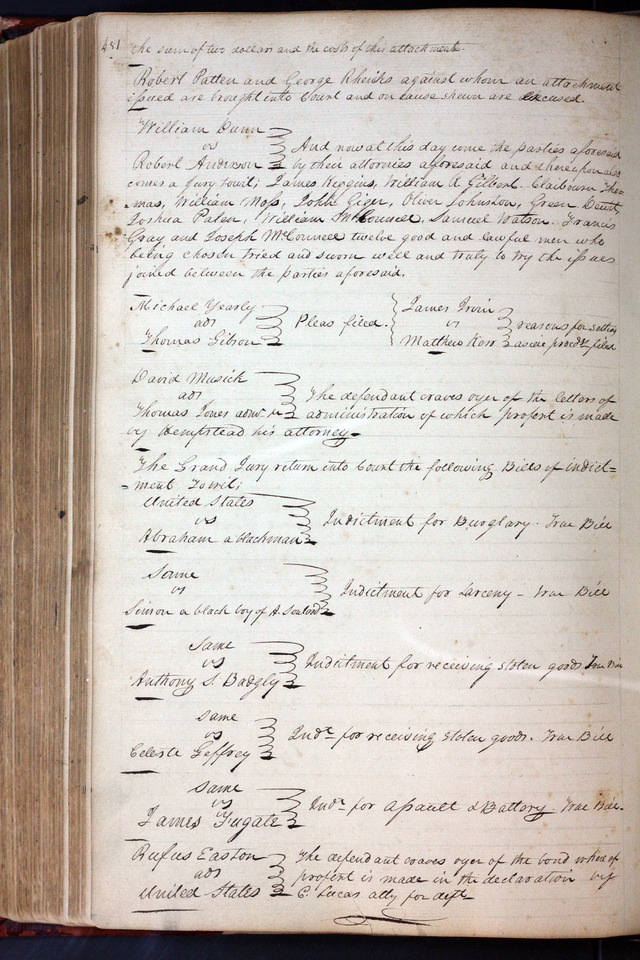 481
the sum of two dollars and the costs of this attachment.
Robert Patten and George Rheicks against whom an attachment
issued are brought into Court and on cause shewn are discused.
William Dunn
vs
Robert Andirson
And now at this day come the parties aforesaid
by their attornies aforesaid and thereupon also
comes a Jury towit; James Higgins, William A Gilbert. Claibourn Tho-
mas, William Moss, John Giger, Oliver Johnston, Green
Joshua Palen, William McConnell, Samuel Watson. Francis
Gray and Joseph McConnell twelve good and lawful men who
being chosen tried and sworn well and truly to try the issues
joined between the parties aforesaid.
Michael Yearly
ads
Thomas Gibson
Pleas filed.
James Irvin
vs
Matthew Kerr
reasons for setting
aside proced.gs filed
David Musick
ads
Thomas Jones adm.r &c
The defendant craves oyer of the letters of
administration of which profert is made
by Hempstead his attorney
The Grand Jury return into Court the following Bills of indict-
=ment Towit;
United States
vs
Abraham a blackman
Indictment for Burglary. True Bill
Same
vs
Simon a black boy of A. Soulard
Indictment for Larceny – True Bill
Same
vs
Anthony S. Badgly
Indictment for receiving stolen goods True Bill
Same
vs
Celeste Geffrey
Ind.t for receiving stolen goods. True Bill
Same
vs
James Fugate
Ind.t for Assault & Battery. True Bill.
Rufus Easton
ads
United States
The defendant craves oyer of the bond whereof
profert is made in the declaration by
C. Lucas atty for deft